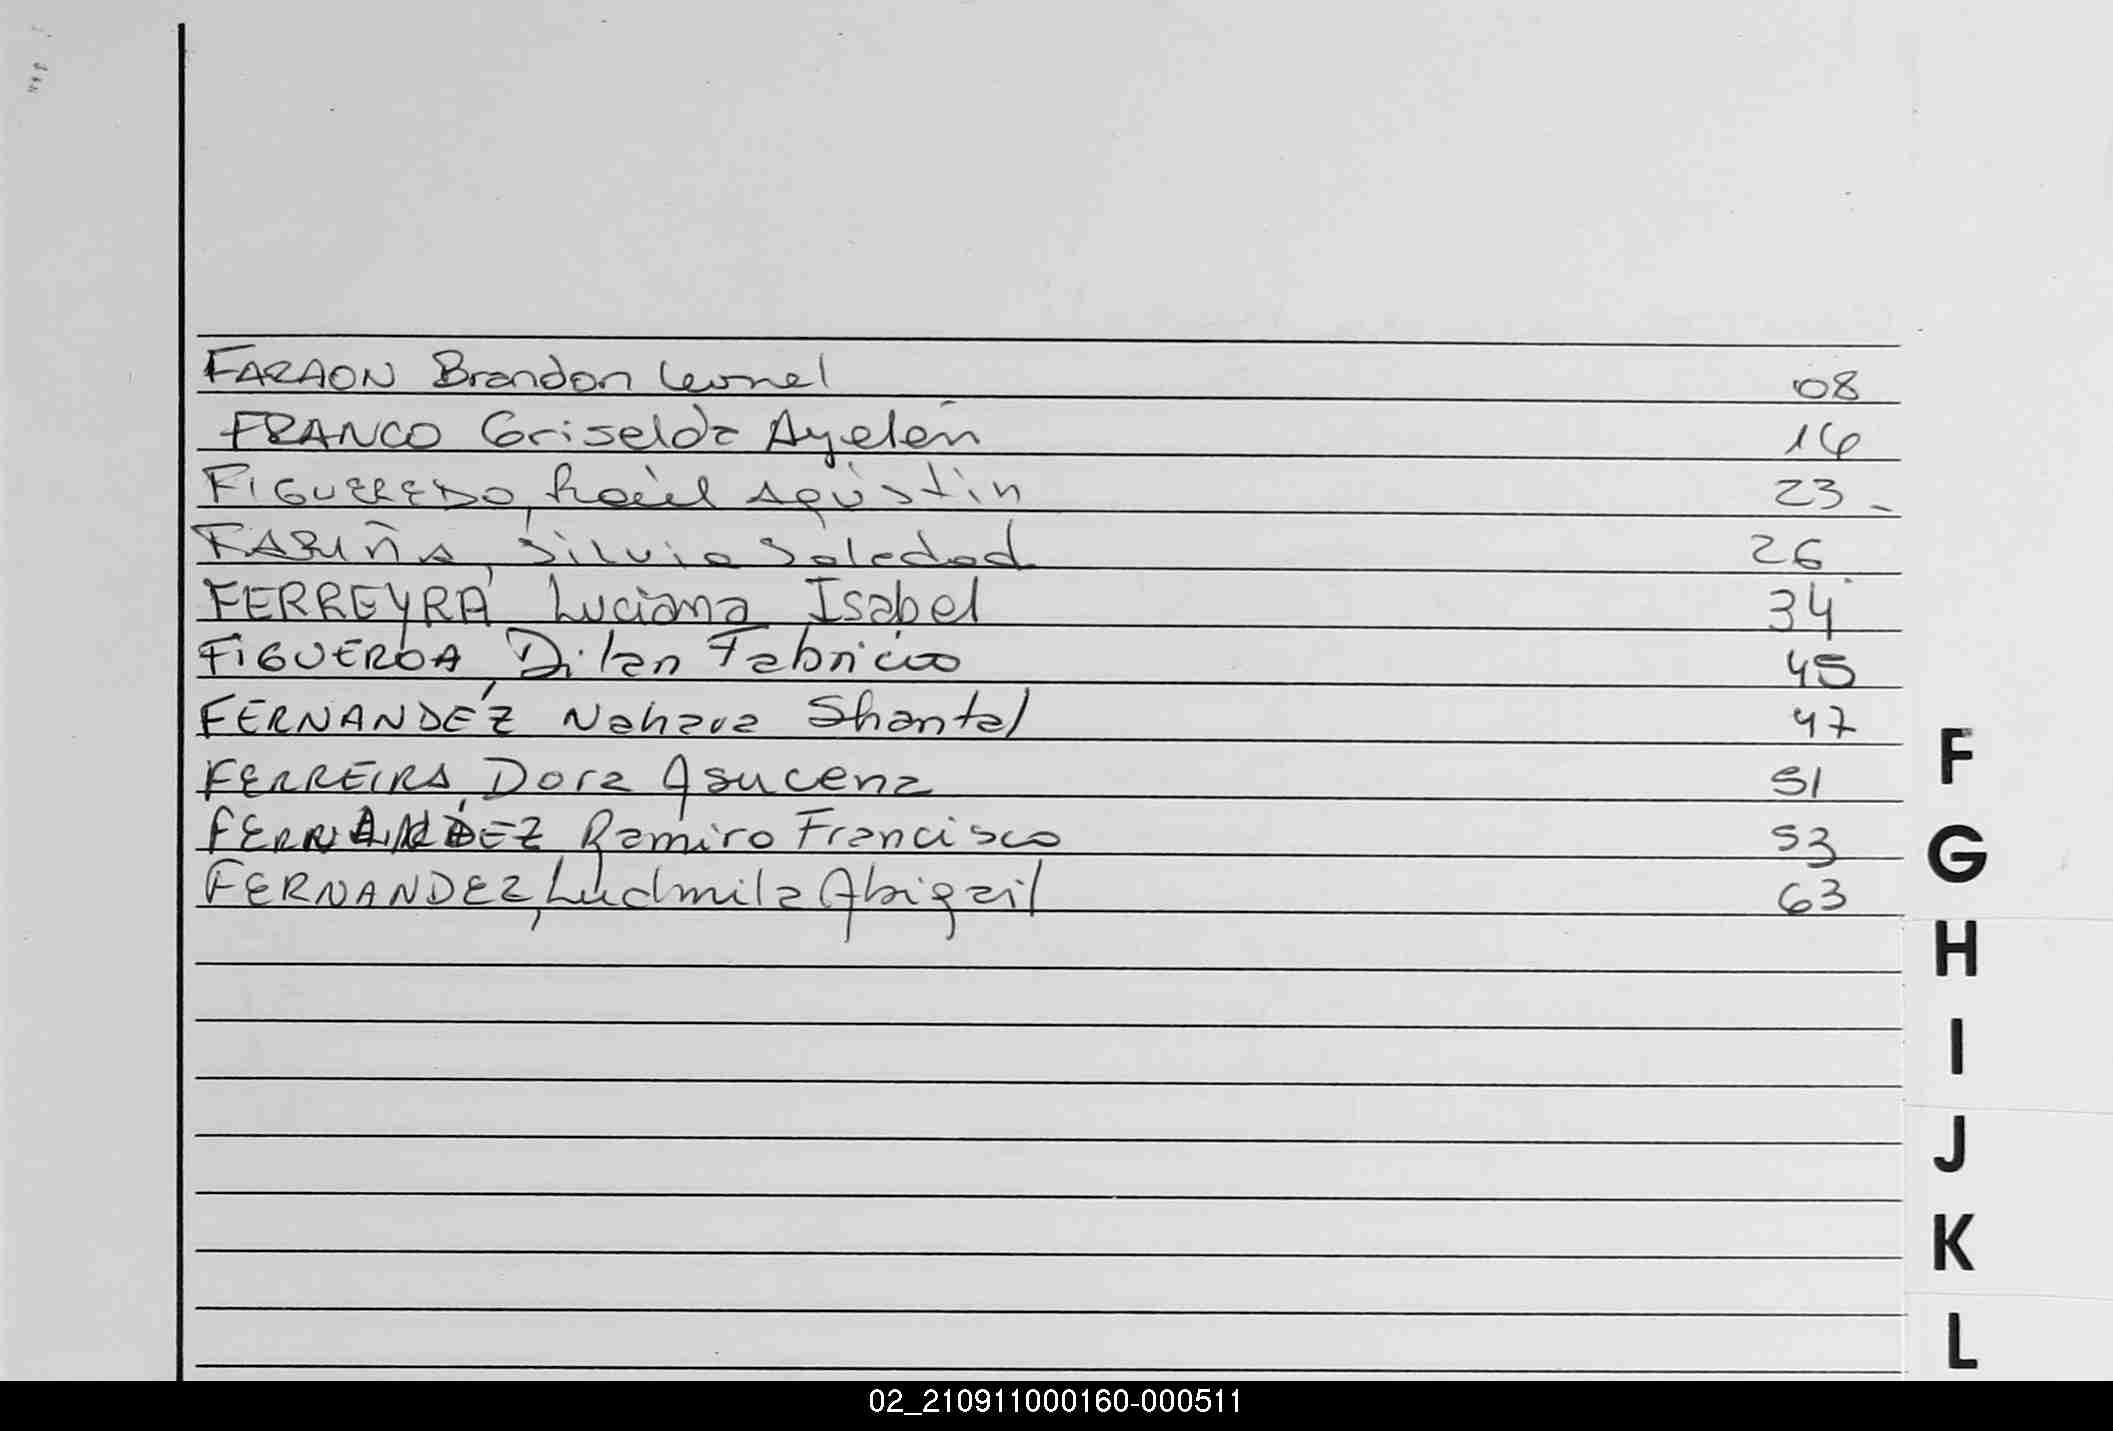 FARAON Brandon Leonel 08
FRANCO Griselda Ayelén 16
FIGUEREDO, Raúl Agustin 23
FARIÑA, Silvia Soledad 26
FERREYRA Luciana Isabel 34
FIGUEROA, Dilan Fabricio 45
FERNANDEZ Nahara Shantal 47
FERREIRA, Dora Asucena 51
FERNANDEZ Ramiro Francisco 53
FERNANDEZ, Ludmila Abigail 63
F
G
H
I
J
K
L
02_210911000160-000511